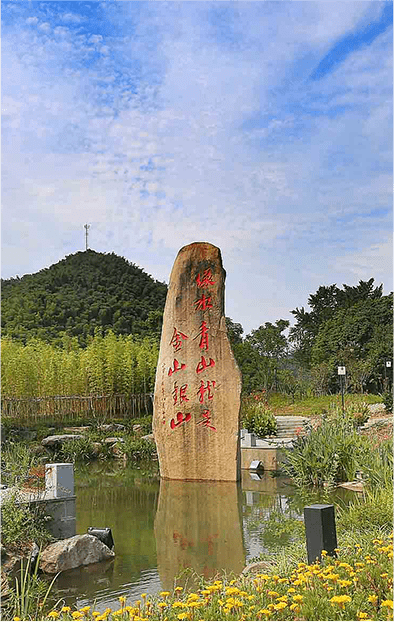 绿水青山就是
金山银山